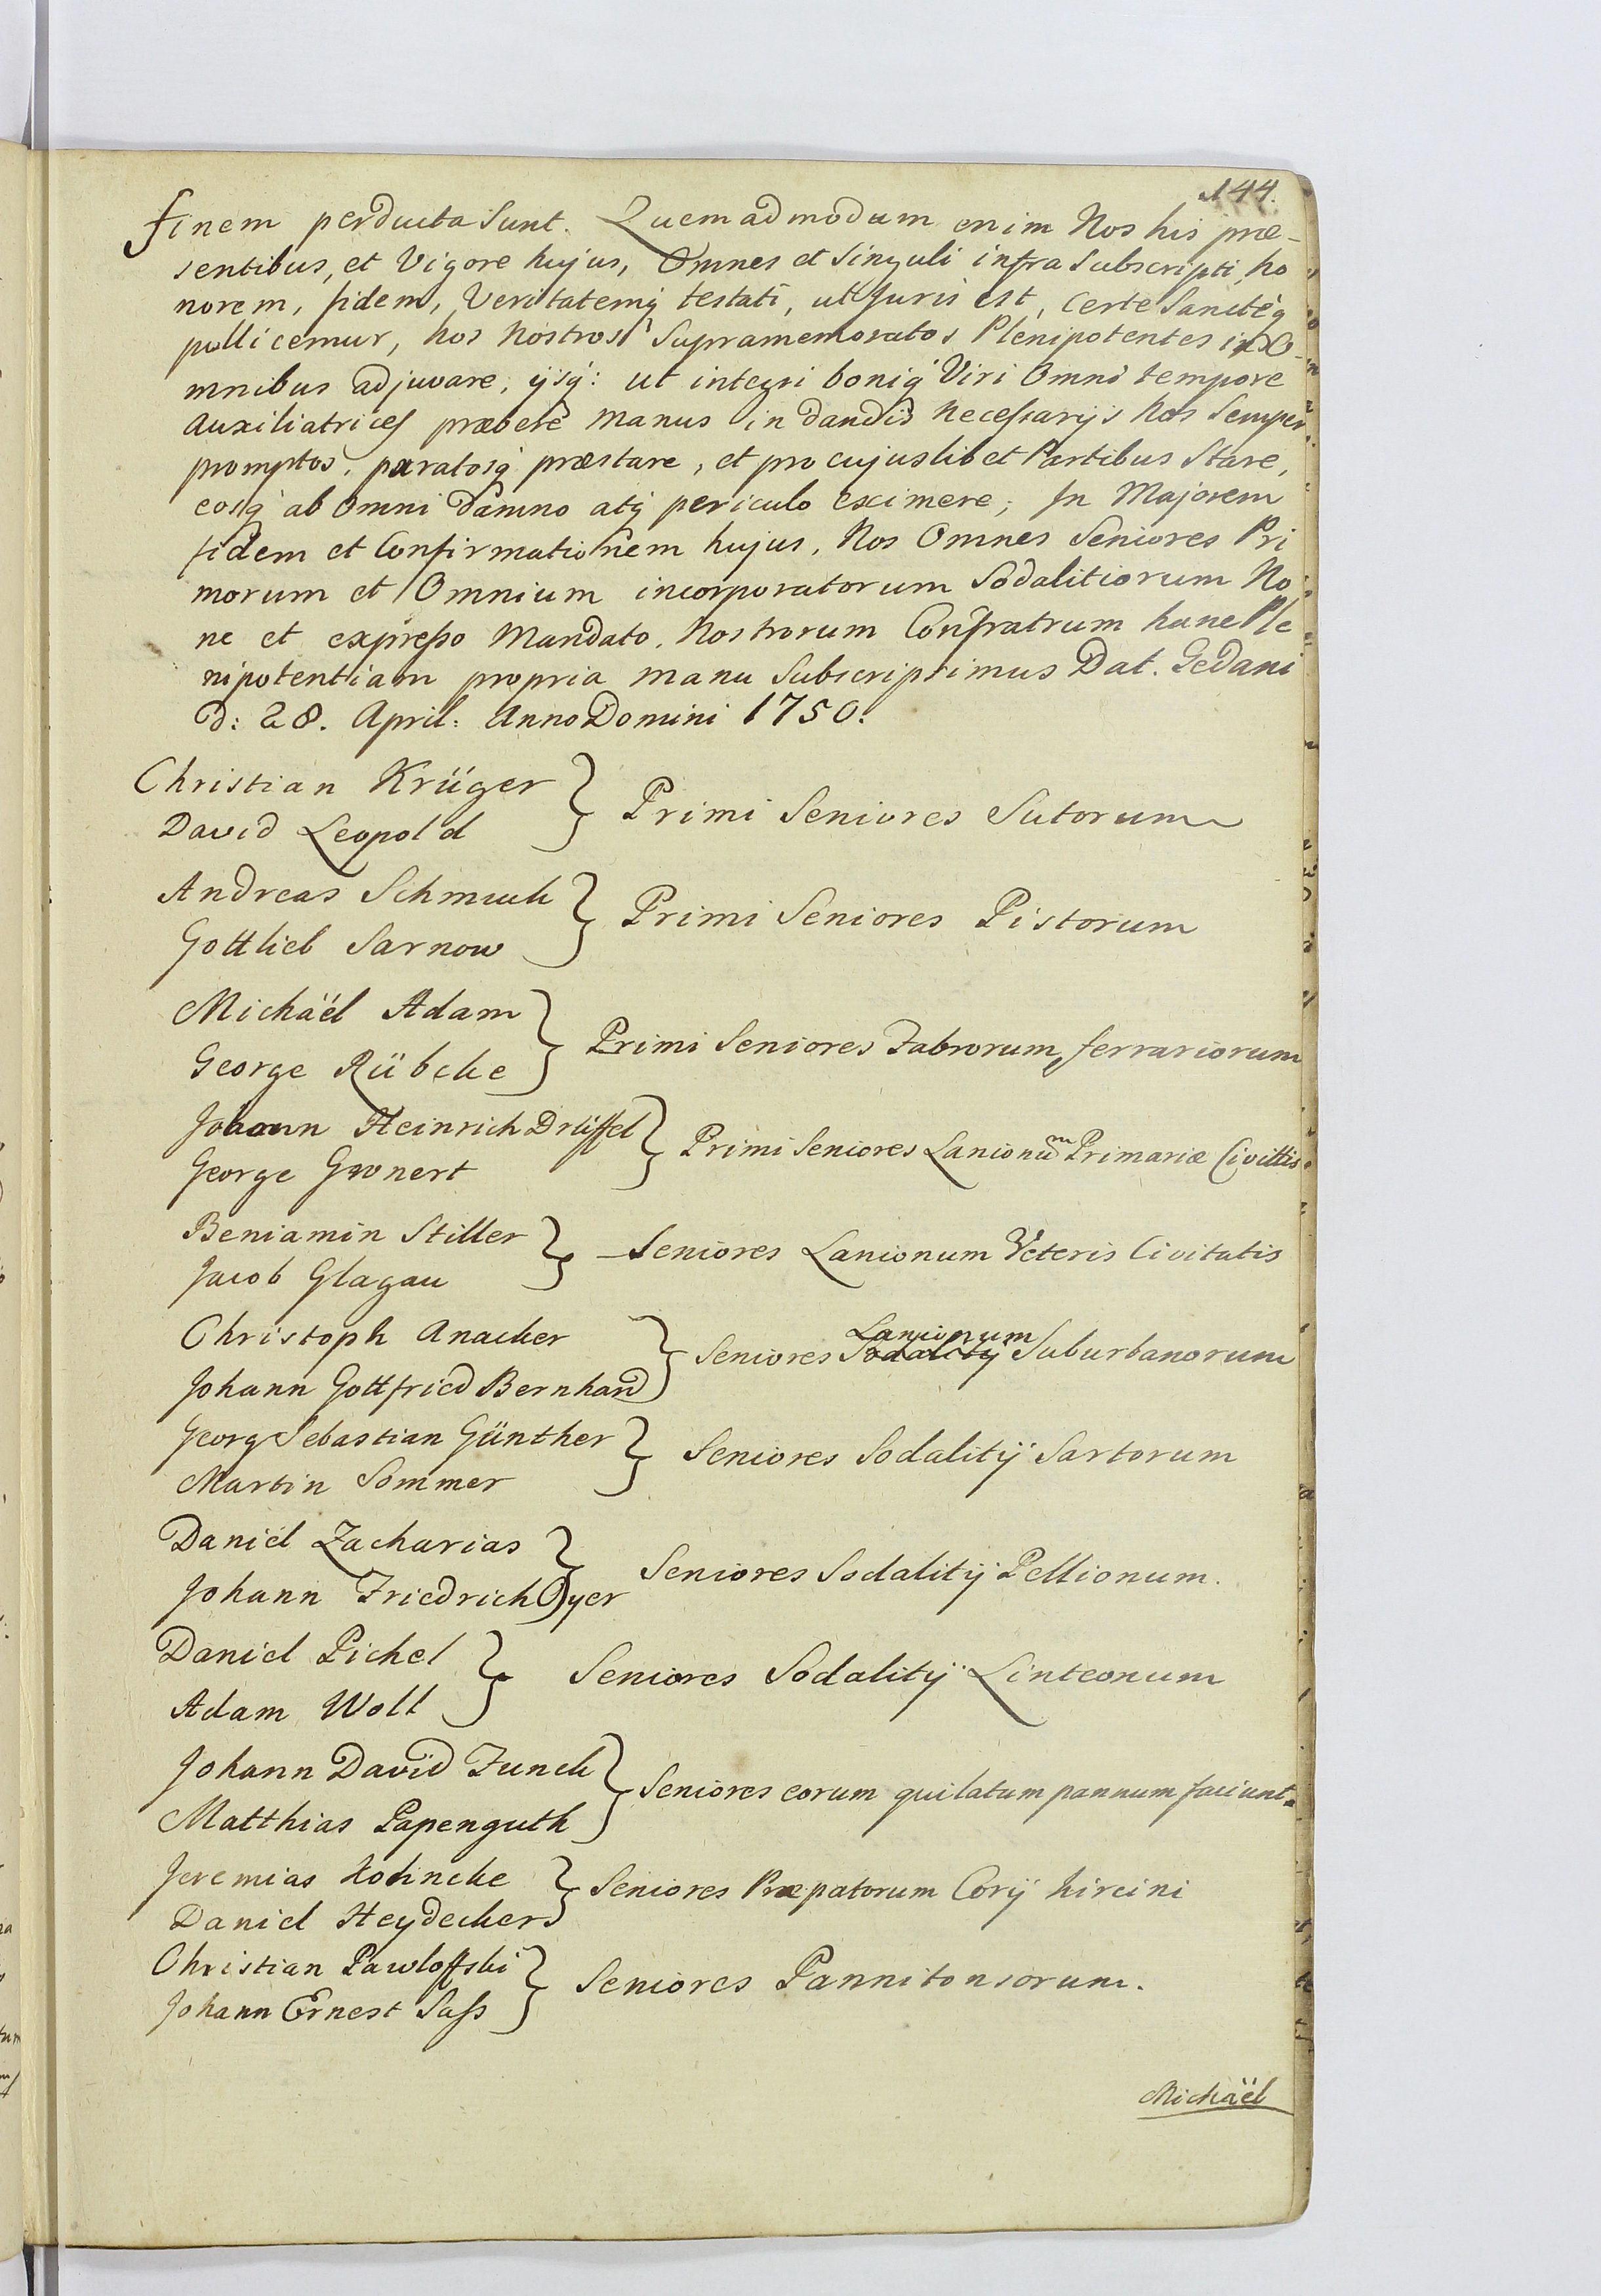 144.
finem perducta sunt. Quemadmodum enim Nos his præ-
sentibus, et Vigore hujus, Omnes et Singuli infra Subscripti, ho
norem, fidem, Veritatemq testati, ut Juris est, Certe Sancteq
pollicemur, hos Nostros Supramemoratos Plenipotentes in O-
mnibus adjuvare, ijsq: ut integri boniq Viri Omni tempore
auxiliatrices præbere manus in dandis necessarijs Nos Semper
promptos, paratosq præstare, et pro cujuslibet Partibus Stare,
eosq ab omni damno atq periculo eximere; In Majorem
fidem et Confirmationem hujus, Nos Omnes Seniores Pri
morum et Omnium incorporatorum Sodalitiorum No
ne et expresso Mandato, Nostrorum Confratrum hanc Ple
nipotentiam propria manu Subscripsimus Dat. Gedani
d: 28. April: Anno Domini 1750.
Christian Krüger
David Leopold } Primi Seniores Sutorum
Andreas Schmuck
Gottlieb Sarnow } Primi Seniores Pistorum
Michäel Adam
George Rübcke } Primi Seniores Fabrorum ferrariorum
Johann Heinrich Drüffel
George Gronert } Primi Seniores Lanionum Primariæ Civittis
Beniamin Stiller
Jacob Glagau } Seniores Lanionum Veteris Civitatis
Christoph Anacker
Johann Gottfried Bernhard } Seniores Sodalitij Lanionum Suburbanorum
Georg Sebastian Günther
Martin Sommer } Seniores Sodalitij Sartorum
Daniel Zacharias
Johann Friedrich Oyer } Seniores Sodalitij Pellionum.
Daniel Pichel
Adam Woll } Seniores Sodalitij Linteonum
Johann David Funck
Matthias Papenguth } Seniores eorum qui latum pannum faciunt.
Jeremias
Daniel Heydecker } Seniores Præpatorum Corij hircini
Christian Pawloffski
Johann Ernest Sass } Seniores Pannitonsorum.
Michäel